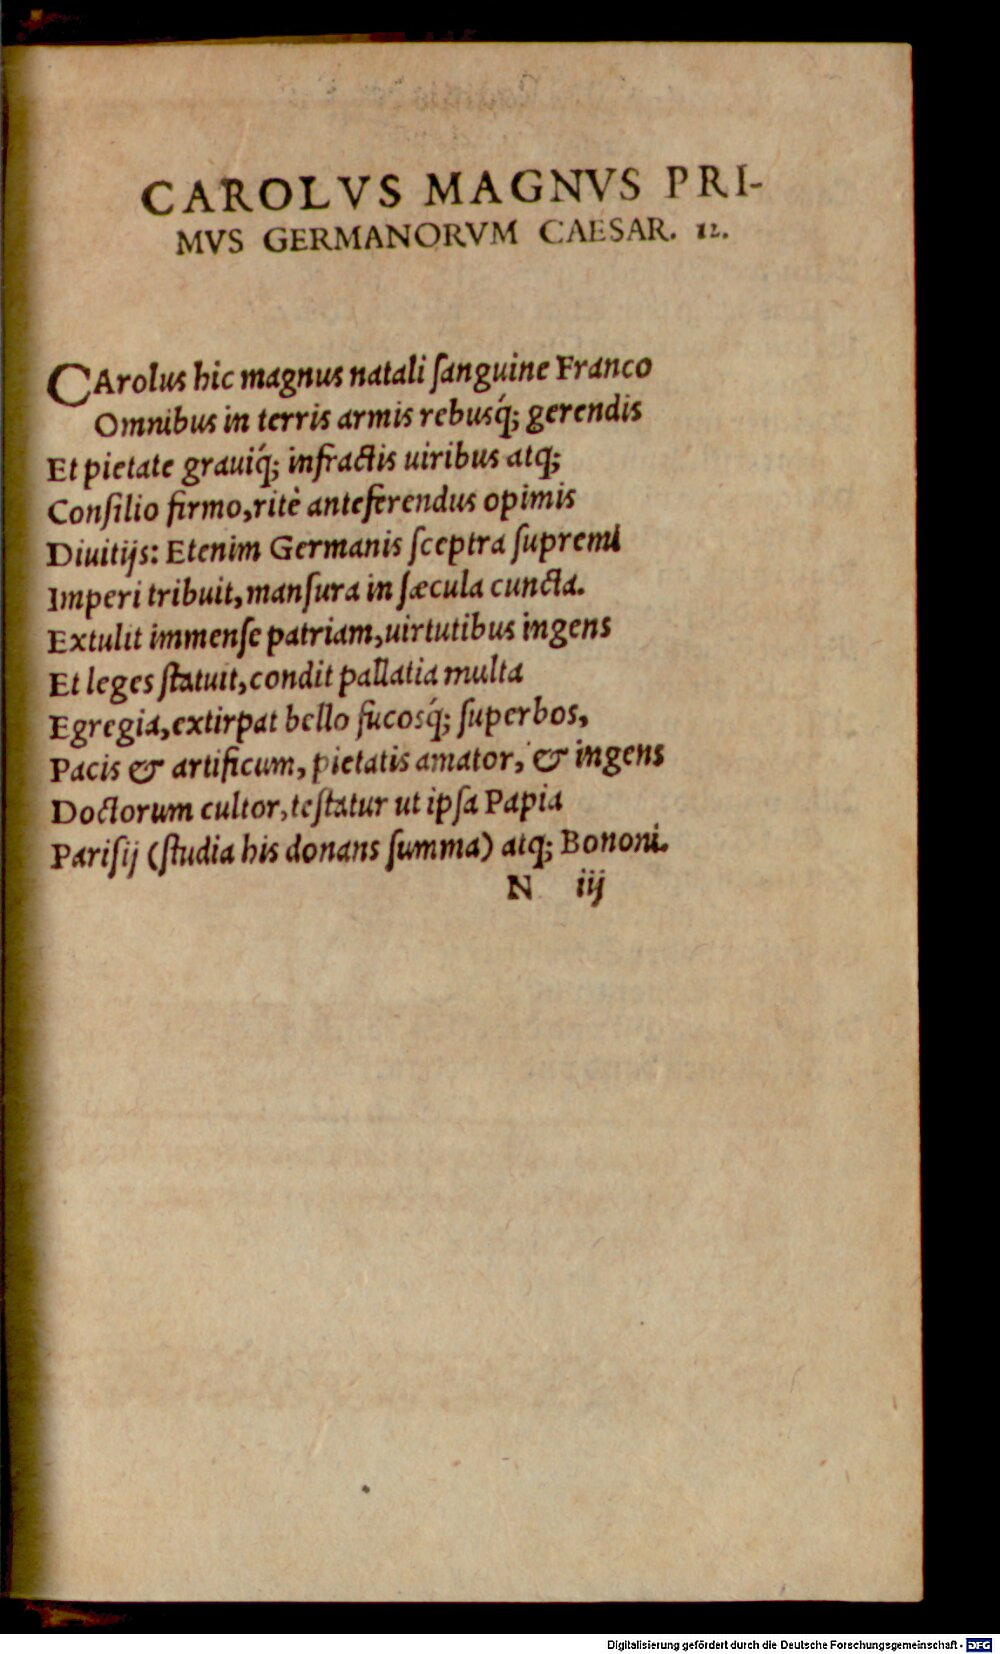 CAROLVS MAGNVS PRI-
MVS GERMANORVM CAESAR. 12.
CArolus hic magnus natali ſanguine Franco
Omnibus in terris armis rebusq́; gerendis
Et pietate grauiq́; infractis uiribus atq;
Conſilio firmo, ritè anteferendus opimis
Diuitijs: Etenim Germanis ſceptra ſupremi
Imperi tribuit, manſura in ſæcula cuncta.
Extulit immenſe patriam, uirtutibus ingens
Et leges ſtatuit, condit pallatia multa
Egregia, extirpat bello fucosq́; ſuperbos,
Pacis & artificum, pietatis amator, & ingens
Doctorum cultor, teſtatur ut ipſa Papia
Pariſij (ſtudia his donans ſumma) atq; Bononi.
N iij
Digitalisierung gefördert durch die Deutsche Forschungsgemeinschaft - DFG